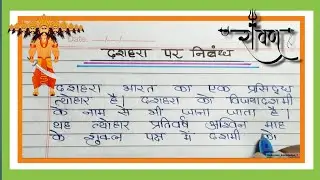 रावण
Date
दशहरा पर निबंध
दशहरा भारत का एक प्रसिद्ध
त्योहार है। दशहरा को विजयादशमी
के नाम से भी जाना जाता है।
यह त्योहार प्रतिवर्ष अश्विन माह
के शुक्ल पक्ष में दशमी को